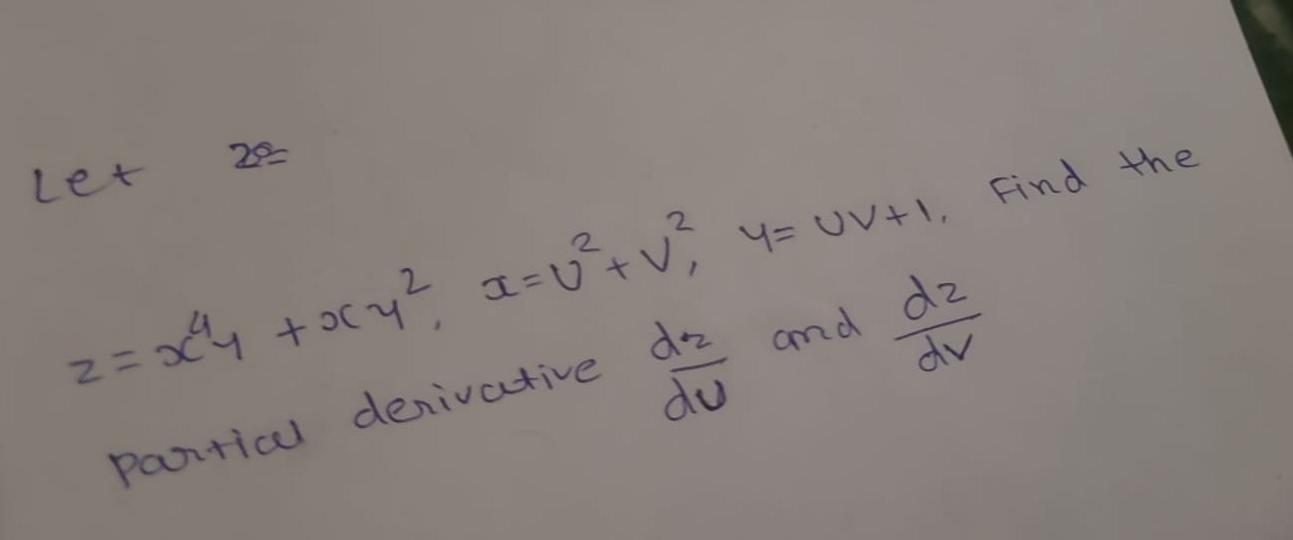 Let
z = x⁴y + xy², x = U² + V², y = UV + 1. Find the
partial derivative dz/dU and dz/dV